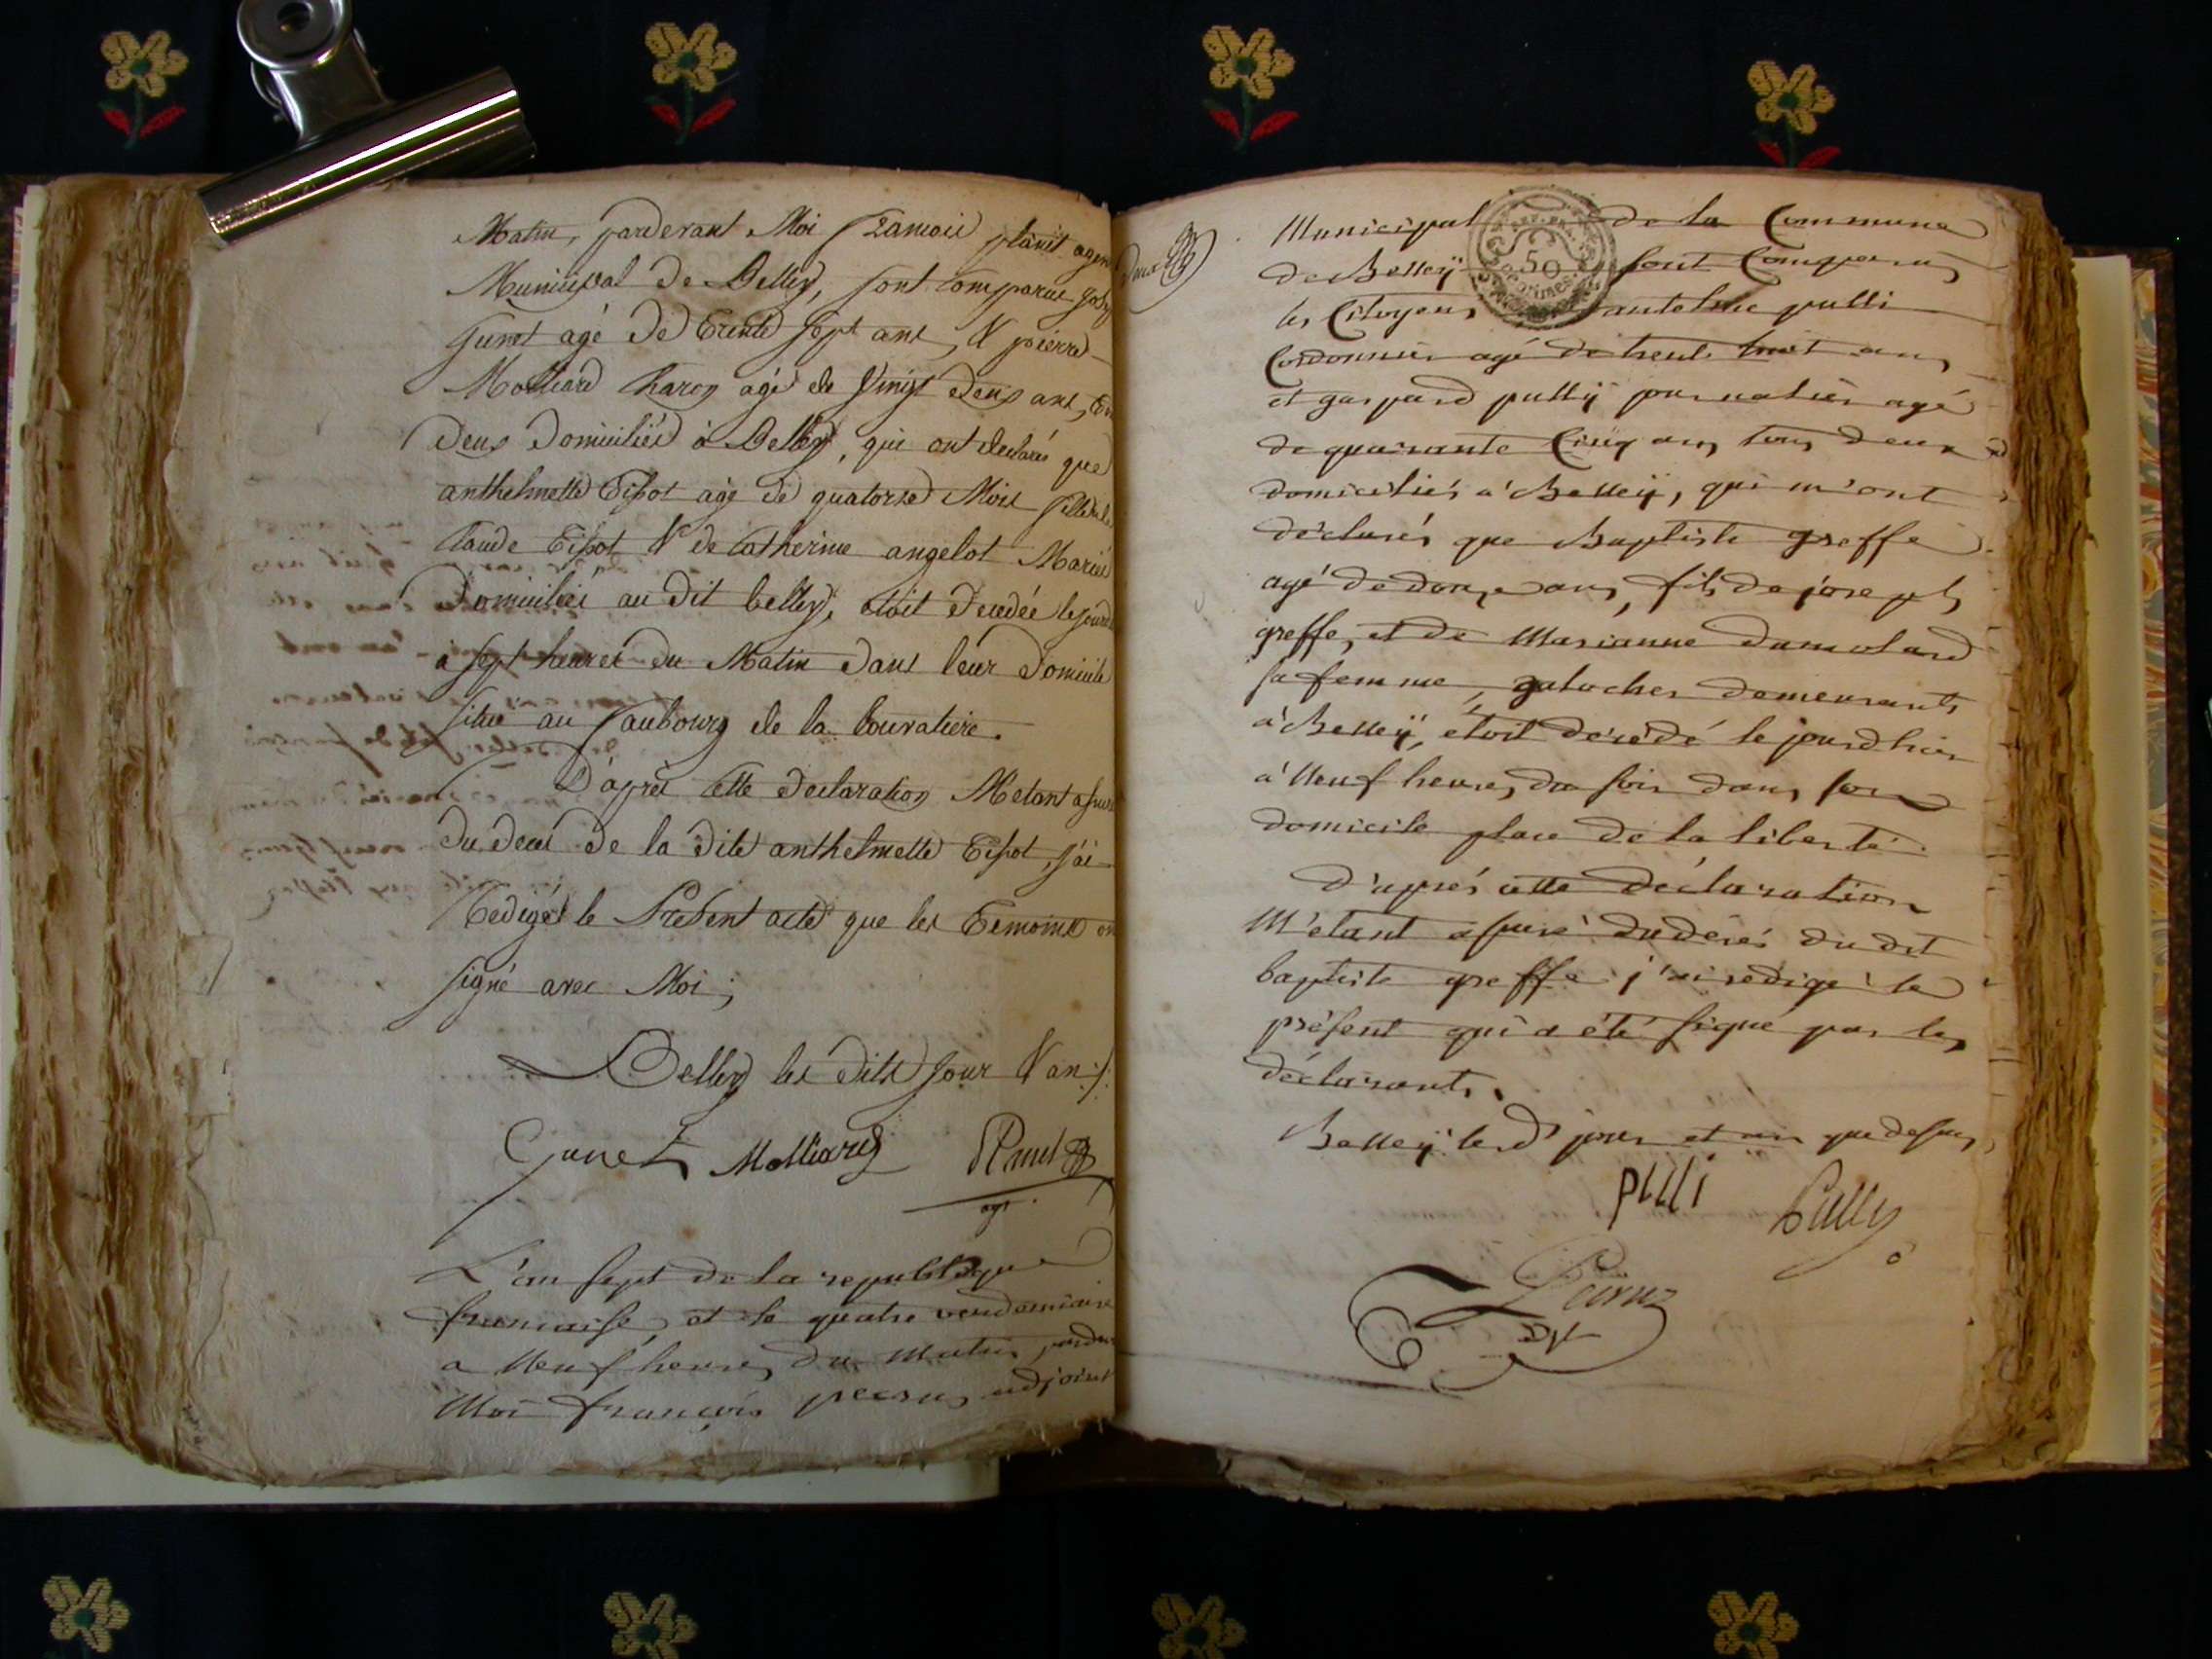 Matin, pardevant Moi francois planet agent
Municipal De Belley, sont comparus
Junet agé De Trente sept ans, & pierre
Molliard charon agé de Vingt deux ans,
Deux Domiciliés à Belley, qui ont declarés que
anthelmette Tissot agé de quatorse Mois fille de
Claude Tissot & de Catherine angelot Mariés
Domiciliés au dit belley, étoit Decedée
à sept heures du Matin dans leur Domicile
situé au faubourg de la
D'après cette declaration M'etant assuré
du Decès de la dite anthelmette Tissot, j'ai
Redigés le Présent acte que les Temoins on
signé avec Moi,
Belley les dits Jour & an ./.
Junet Molliard
agt
L'an sept de la republique
francaisse, et le quatre vendemiaire
a Neuf heures du matin
Moi françois adjoint
Municipal de la Commune
50
de Belleÿ sont Comparus
les Citoyens antelme pulli
Cordonnier agé de trente huit ans
et gaspard pullÿ journalier agé
de quarante Cinq ans tous deux
domiciliés a Belleÿ, qui m'ont
déclarés que Baptiste greffe
agé de douze ans, fils de joseph
greffe, et de Marianne dumolard
sa femme, demeurants
a Belleÿ, étoit décédé le jourdhier
a Neuf heures du soir dans son
domicile place de la liberté.
D'aprés cette déclaration
M'étant assuré du décés du dit
baptiste greffe j'ai redigé le
présent qui a été signé par les
déclarants.
Belleÿ lesd. jour et an que dessus,
pulli Pully